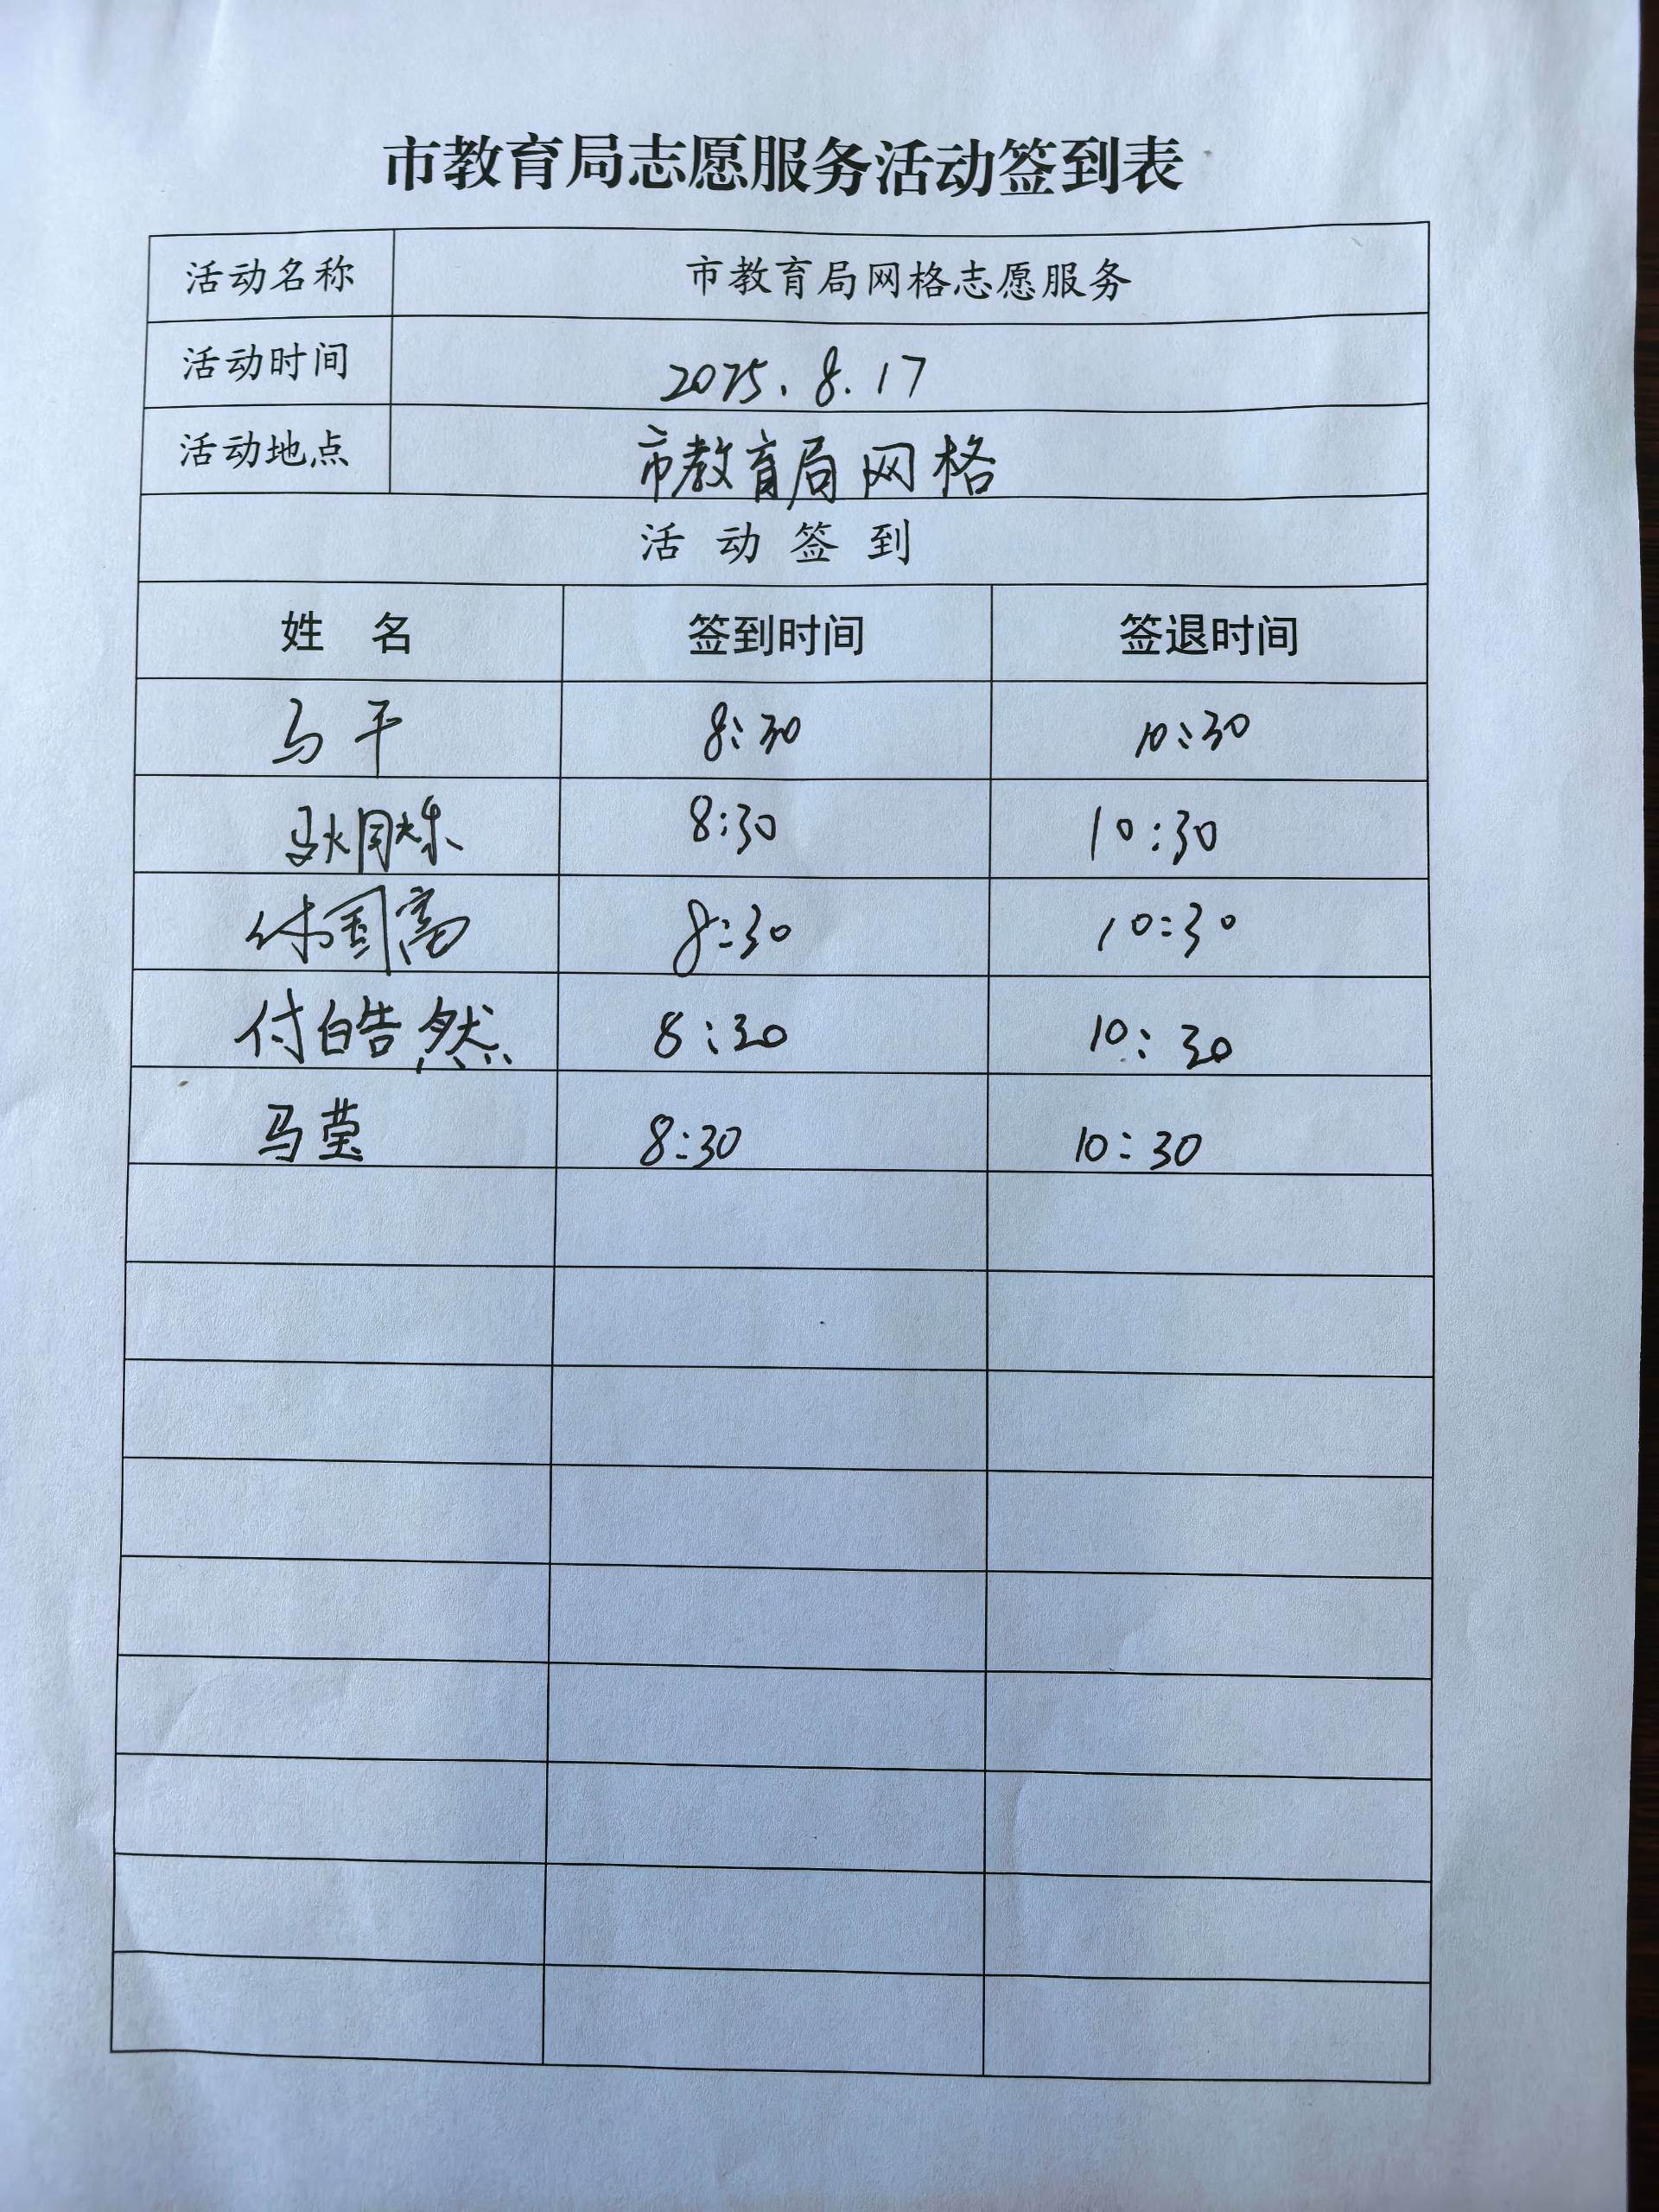 市教育局志愿服务活动签到表
活动名称 市教育局网格志愿服务
活动时间 2025.8.17
活动地点 市教育局网格
活动签到
姓 名 签到时间 签退时间
马干 8:30 10:30
8:30 10:30
8:30 10:30
付皓然 8:30 10:30
马莹 8:30 10:30